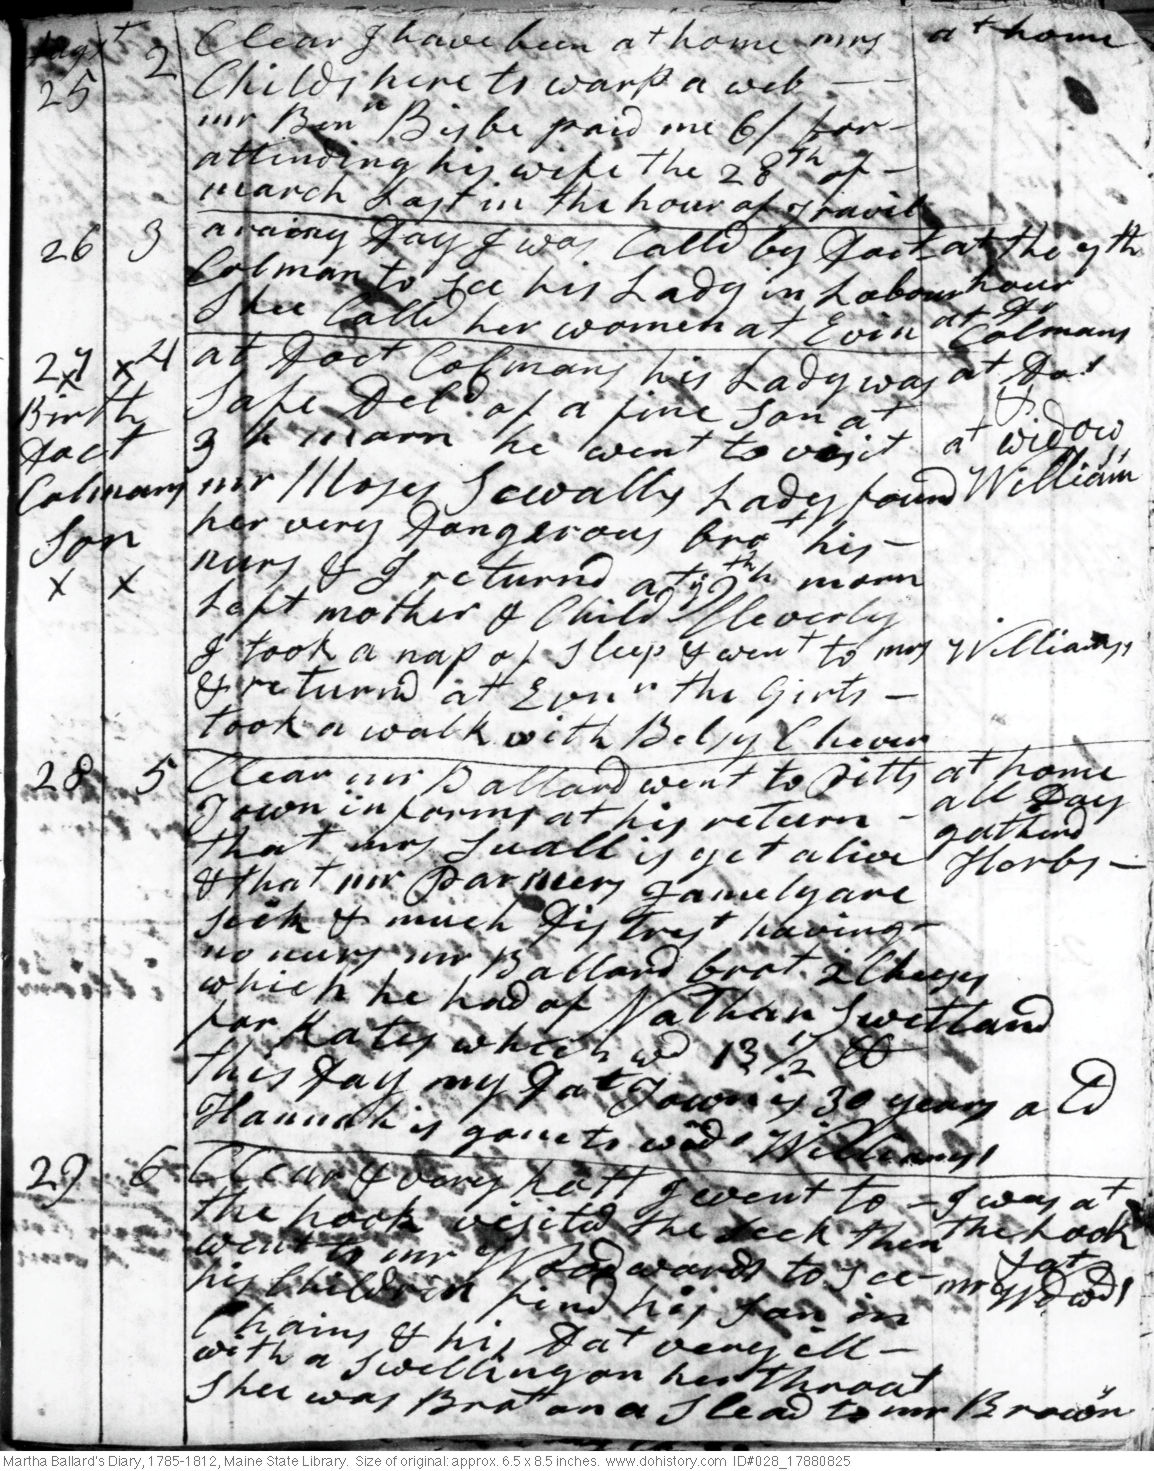 Augst 2 Clear I have been at home mrs at home
25 Childs here to warp a web
mr Benn Bisbe paid me 6/ for
attending his wife the 28th of
march Last in the hour of Travil
26 3 a rainy Day I was Calld by Doct at the 7th
Colman to see his Lady in Labour hour
Shee Calld her women at Evin at Dr Colmans
27 4 at Doct Colmans his Lady was at Dos
x x
Birth Safe Deld of a fine Son at &
Doct 3 h morn he went to visit at widow
Colmans mr Moses Sewalls Lady found Williams
Son her very Dangerous brot his
x x nurs & I returnd at 9th h morn
Left mother & Child Cleverly
I took a nap of sleep & went to mrs Williamss
& returnd at Evnn the Girls
took a walk with Betsy Chever
28 5 Clear mr Ballard went to Pitts at home
Town informs at his return all Day
that mrs Suall is yet alive gatherd
& that mr Parmers Famely are Herbs
sick & much Distrest having
no nurs mr Ballard brot 2 Cheess
which he had of Nathan Swetland
for Kates which wd 13 1/2 lb
this Day my Dat Town is 30 years a Ed
Hannah is gone to wd Williamss
29 6 Clear & very hott I went to I was at
the hook visited the seek then the hook
went to mr Woodwards to see & at
his Children find his Son in mr Wdwds
Chains & his Dat very ill
with a swelling on her throat
Shee was Brot on a Slead to mr Brown
Martha Ballard's Diary, 1785-1812, Maine State Library. Size of original: approx. 6.5 x 8.5 inches. www.dohistory.com ID#028_17880825